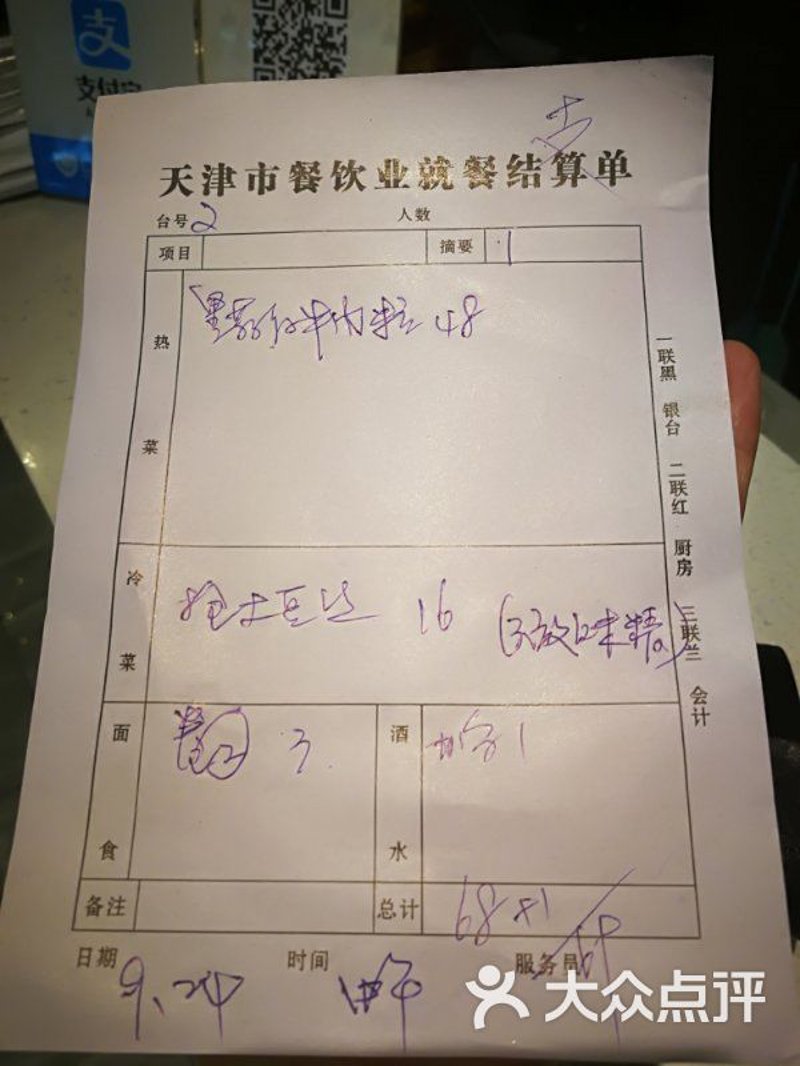 支付宝
天津市餐饮业就餐结算单
台号 2 人数
项目 摘要 1
热菜 黑蒜仔牛肉粒 48
冷菜 炝土豆丝 16 (不放味精)
面食 3. 酒水 1
备注 总计 68+1
日期 9.24 时间 中午 服务员
一联黑 银台 二联红 厨房 三联兰 会计
大众点评